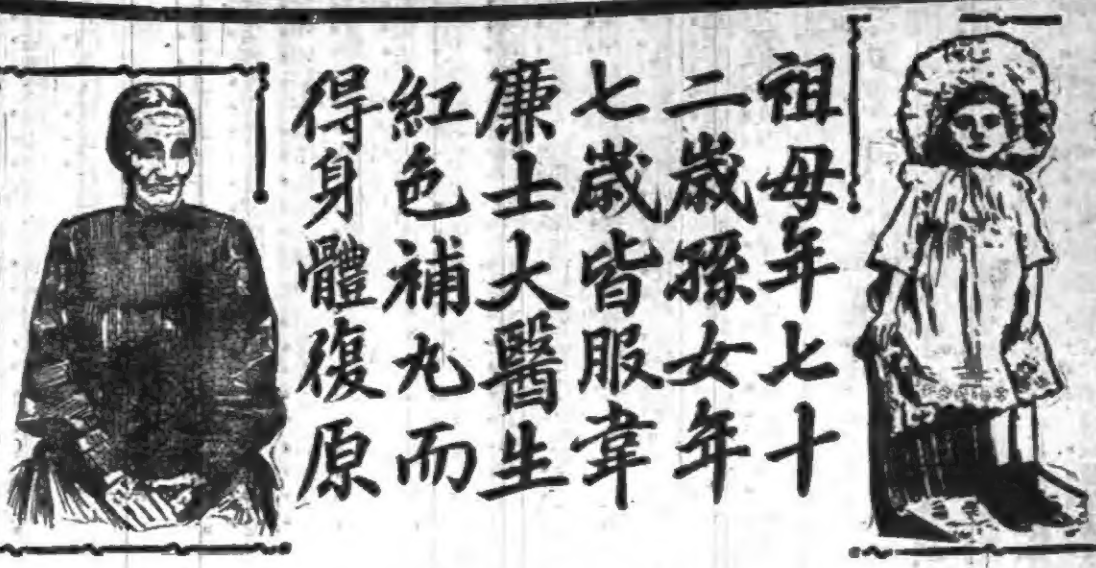 祖母年七十
二歲孫女年
七歲皆服韋
廉士大醫生
紅色補丸而
得身體復原